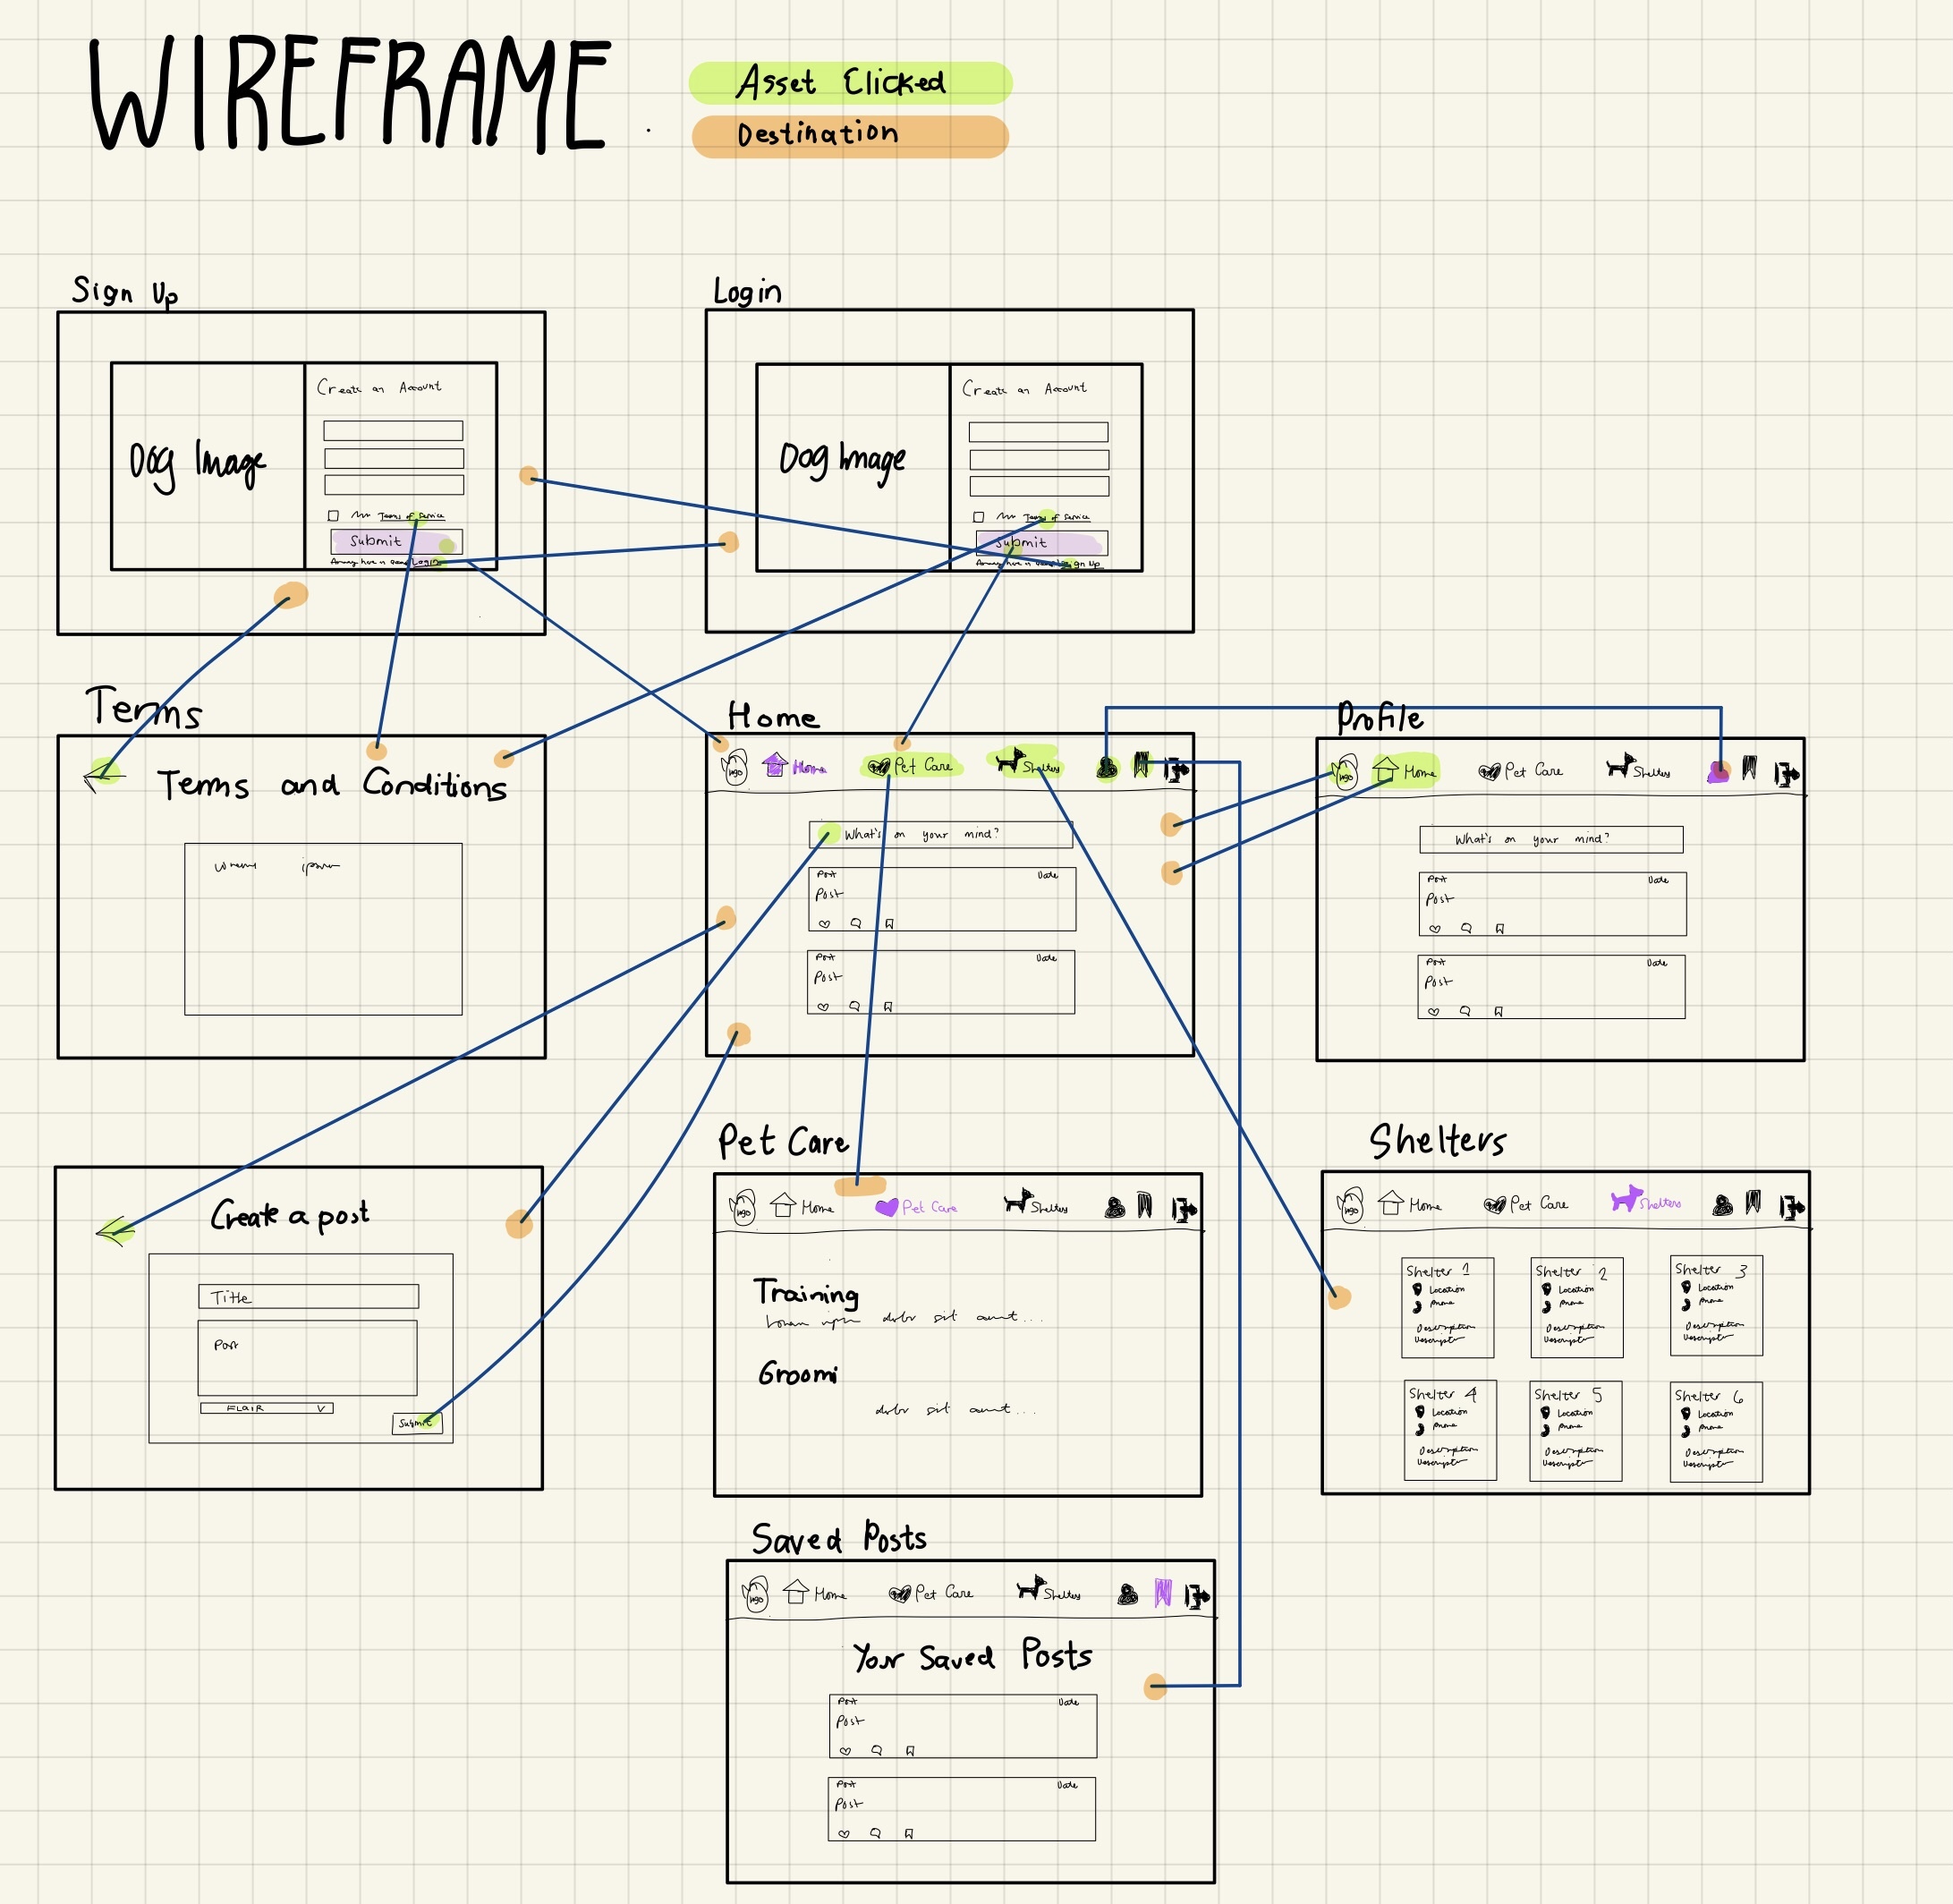 WIREFRAME
Asset Clicked
Destination
Sign Up
Create an Account
Dog Image
Terms of Service
Submit
Login
Login
Create an Account
Dog Image
Terms of Service
Submit
Sign Up
Terms
Terms and Conditions
Home
logo Home Pet Care Shelters
What's on your mind?
Post Date
Post
Post Date
Post
Profile
logo Home Pet Care Shelters
What's on your mind?
Post Date
Post
Post Date
Post
Create a post
Title
Post
FLAIR V
Submit
Pet Care
logo Home Pet Care Shelters
Training
dolor sit amet...
Groomi
dolor sit amet...
Shelters
logo Home Pet Care Shelters
Shelter 1
Location
Phone
Description
Shelter 2
Location
Phone
Description
Shelter 3
Location
Phone
Description
Shelter 4
Location
Phone
Description
Shelter 5
Location
Phone
Description
Shelter 6
Location
Phone
Description
Saved Posts
logo Home Pet Care Shelters
Your Saved Posts
Post Date
Post
Post Date
Post